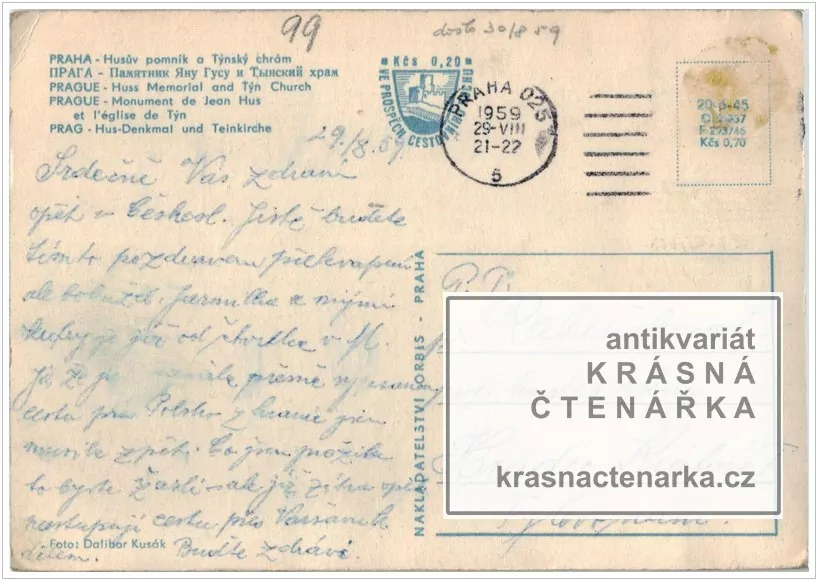 99
došlo 30/8 59
PRAHA - Husův pomník a Týnský chrám
ПРАГА - Памятник Яну Гусу и Тынский храм
PRAGUE - Huss Memorial and Týn Church
PRAGUE - Monument de Jean Hus
et l'église de Týn
PRAG - Hus-Denkmal und Teinkirche
Kčs 0,20
VE PROSPĚCH CESTOVNÍHO RUCHU
PRAHA 025
1959
29-VIII
21-22
5
20-6-45
Kčs 0,70
29./8.59
Srdečně Vás zdravím
opět v Českosl. Jistě budete
tímto pozdravem překvapeni
ale bohužel. Jarmilka a
je již od čtvrtka v M.
Já
cestu přes Polsko z hranic jsem
musila zpět. Co jsem prožila
to byste žasli ale již zítra opět
nastupuji cestu přes Varšavu k
dětem. Buďte zdrávi.
Foto: Dalibor Kusák
NAKLADATELSTVÍ ORBIS - PRAHA
P. T.
antikvariát
KRÁSNÁ
ČTENÁŘKA
krasnactenarka.cz